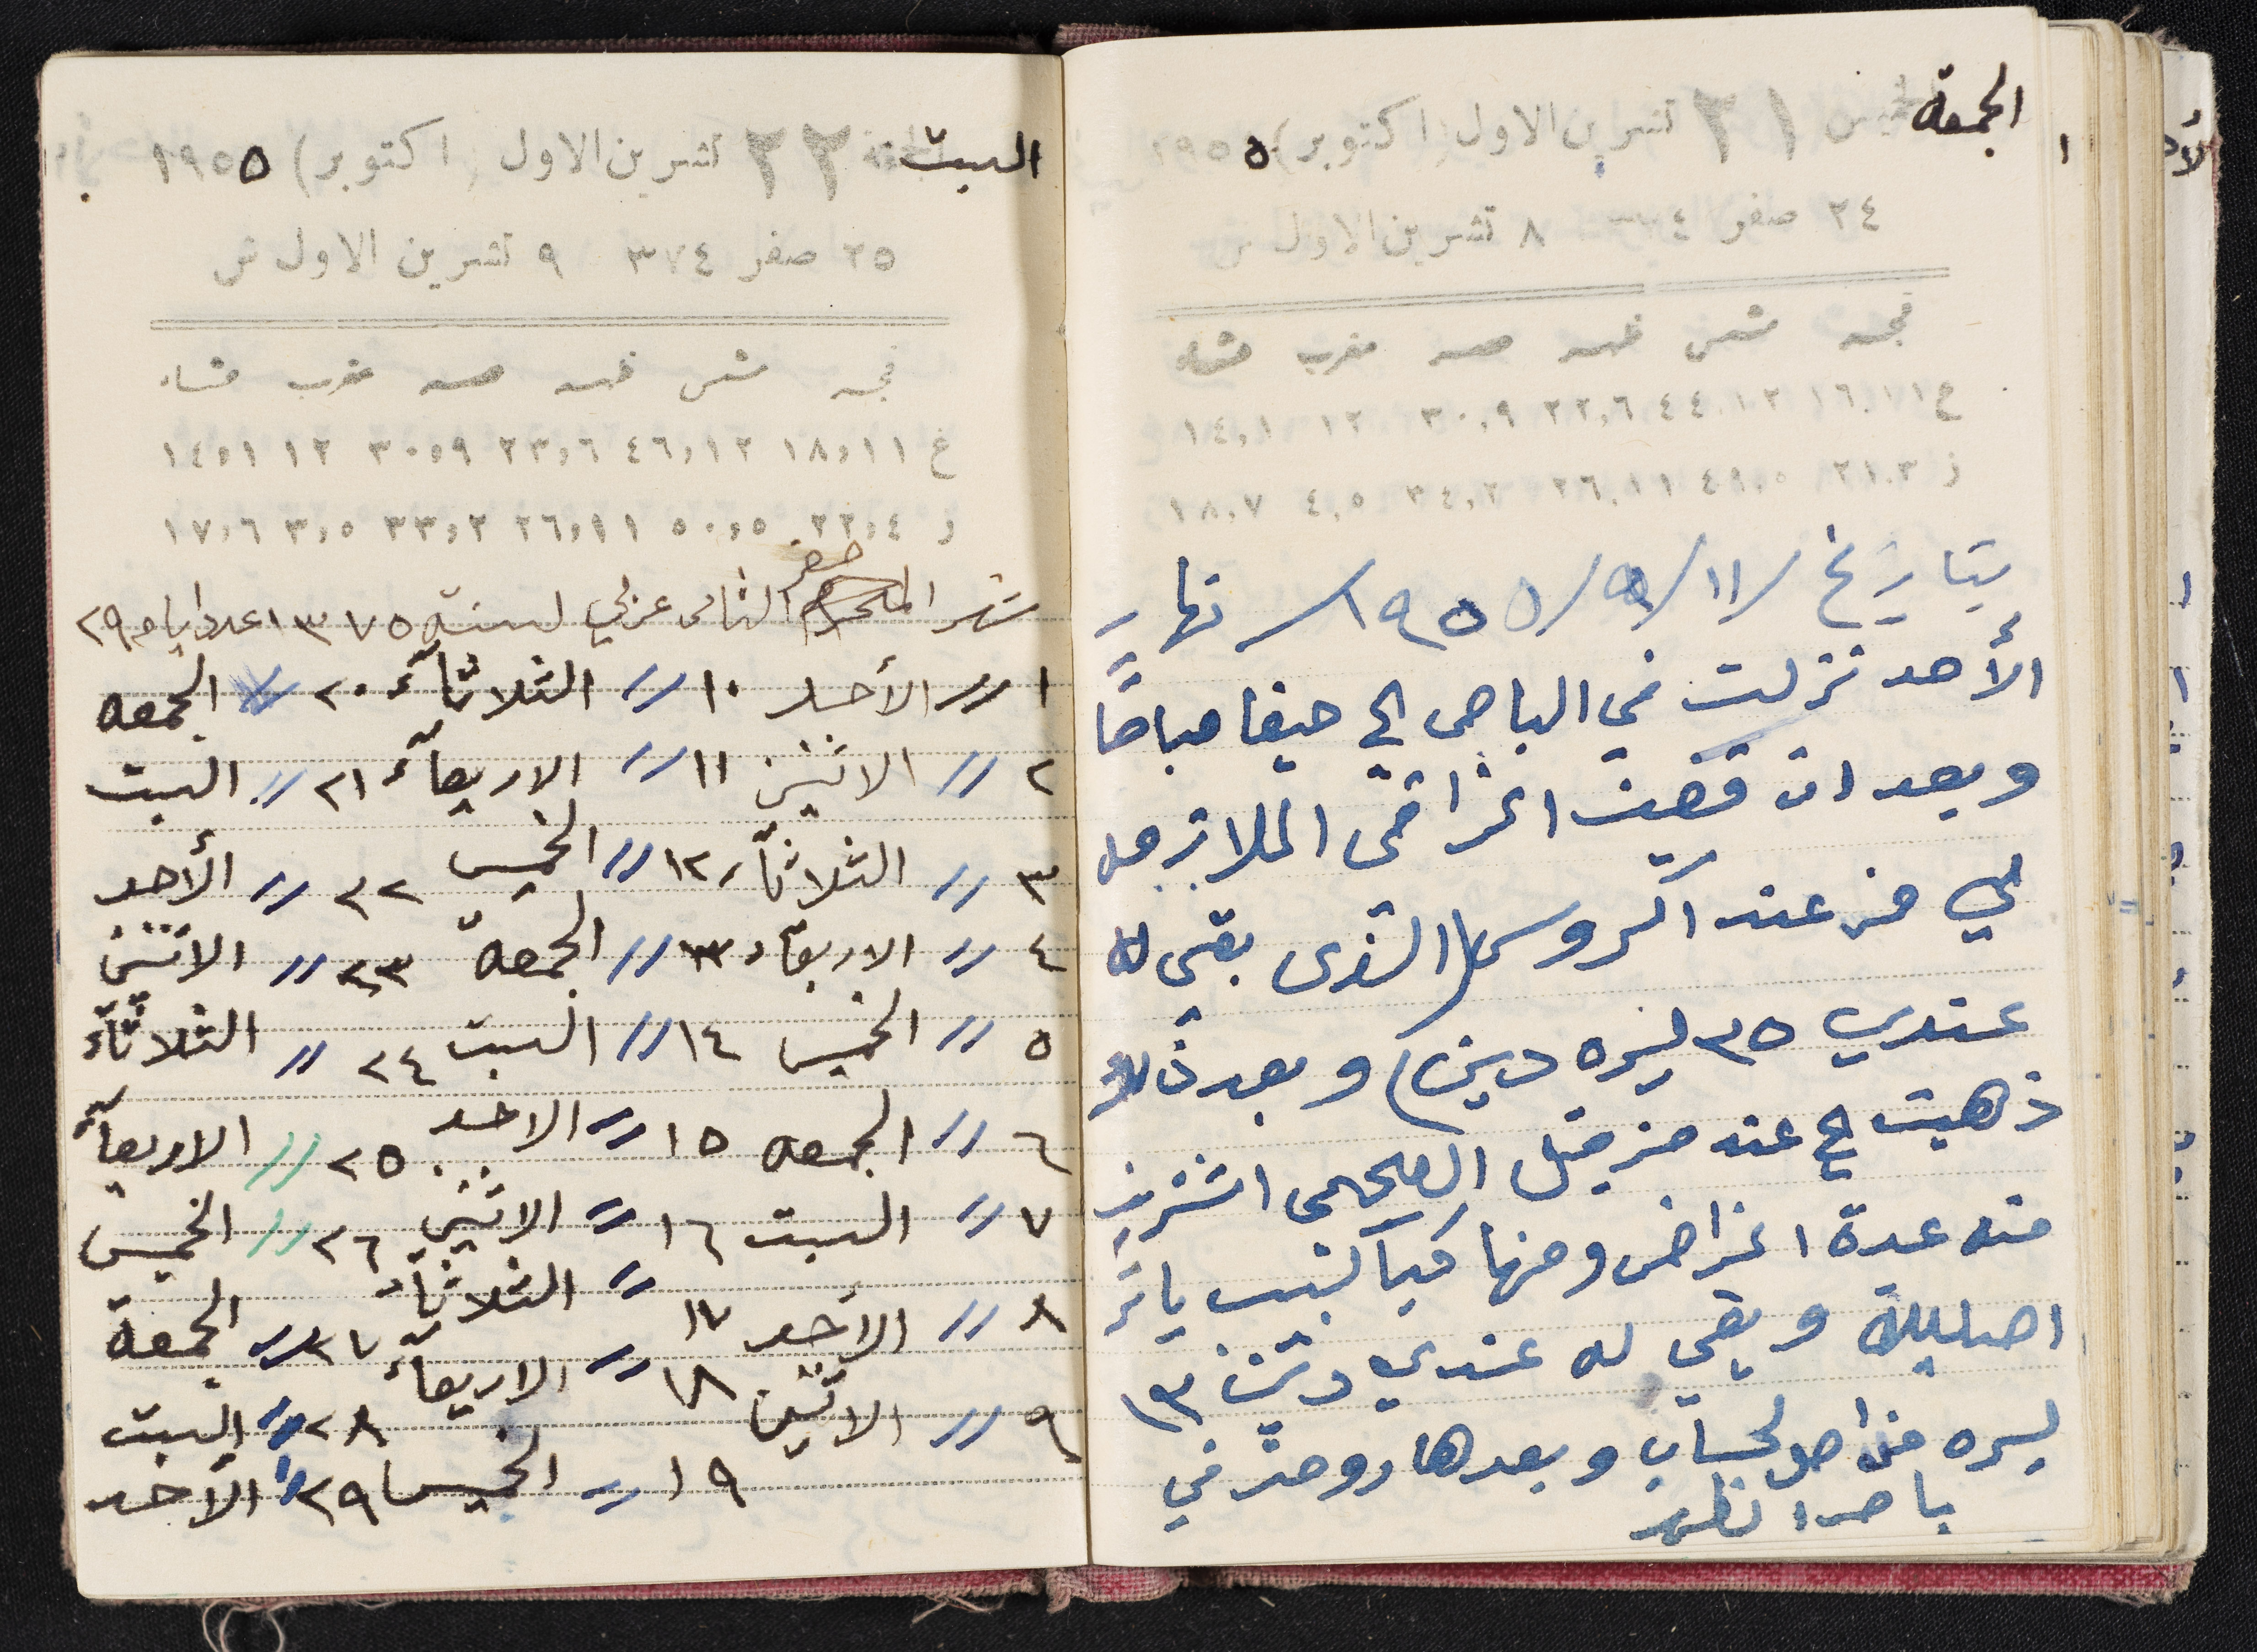 الجمعة
٢١ تشرين الاول (اكتوبر) ١٩٥٥
٢٤ صفر ٨ تشرين الاول ش
فجر شمس ظهر عصر مغرب عشاء
ع ١٦,١١ ٤٤,١٢ ٢٢,٦ ٣٠,٩ ١٢ ١٤,١
ز ٢١,٣ ٤٩,٥ ٢٦,١١ ٣٤,٢ ٤,٥ ١٨,٧
بتاريخ /١١/٩/١٩٥٥/ نهار
الأحد نزلت في الباص الى حيفا صباحًا
وبعد ان قضيت اغراضى اللازمه
لي من عند اكروس (الذى بقي له
عندي ٣٥ ليره دين) وبعد ذلك
ذهبت الى عند مزيقل الصحصي اشتريت
منه عدة اغراض ومنها
وبقي له عندي دين ١٣
ليره من اصل لحساب وبعدها روحت في
باص الظهر
السبت
٢٢ تشرين الاول (اكتوبر) ١٩٥٥
٢٥ صفر ٣٧٤ ٩ تشرين الاول ش
فجر شمس ظهر عصر مغرب عشاء
غ ١٨,١١ ٤٦,١٢ ٢٣,٦ ٣٠,٩ ١٢ ١٤,١
ز ٢٢,٤ ٥٠,٥ ٢٦,١١ ٣٣,٢ ٣,٥ ١٧,٦
صفر
شهر الثانى عربي لسنة ١٣٧٥ عدد ايامه ٢٩
١ // الأحد ١٠ // الثلاثآء ٢٠ // الجمعه
٢ // الاثنين ١١ // الاربعآء ٢١ // السبت
٣ // الثلاثآء ١٢ // الخميس ٢٢ // الأحد
٤ // الاربعآء ١٣ // الجمعة ٢٣ // الاثنين
٥ // الخميس ١٤ // السبت ٢٤ // الثلاثآء
٦ // الجمعه ١٥ // الاحد ٢٥ // الاربعآء
٧ // السبت ١٦ // الاثنين ٢٦ // الخميس
٨ // الأحد ١٧ // الثلاثآء ٢٧ // الجمعة
٩ // الاثنين ١٨ // الاربعآء ٢٨ // السبت
١٩ // الخميس ٢٩ // الأحد